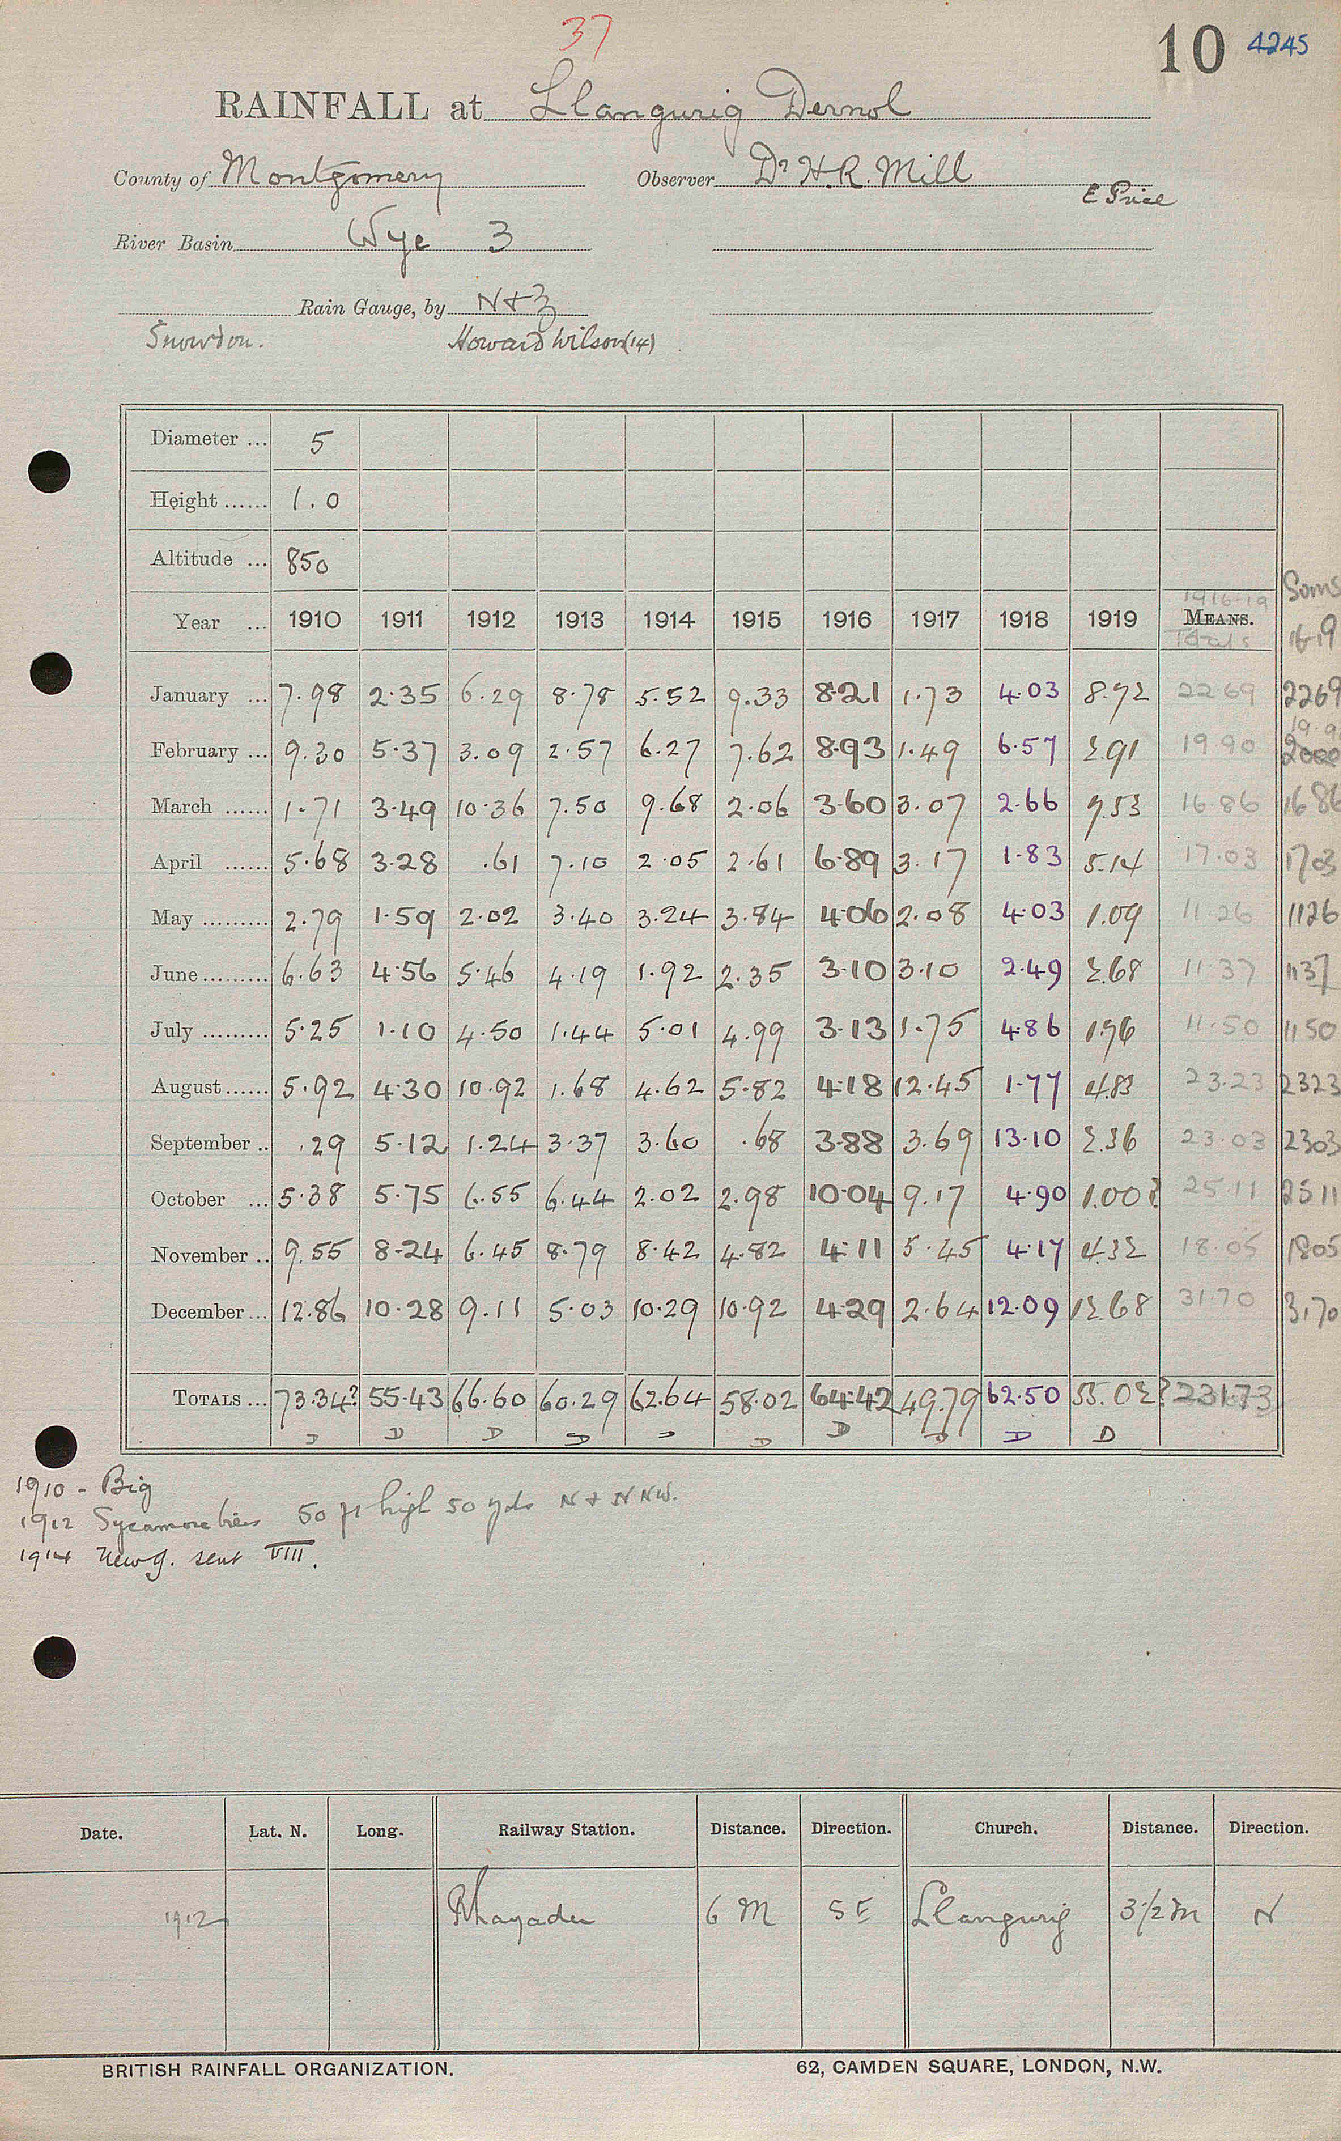 37
10 4245
RAINFALL at Llangurig Dernol
County of Montgomery Observer Dr H.R. Mill
E Price
River Basin Wye 3
Rain Gauge, by N+Z
Snowdon. Howard Wilson (14)
Diameter ... 5
Height ...... 1.0
Altitude ... 850
Sums
1916-19
Year ... 1910 1911 1912 1913 1914 1915 1916 1917 1918 1919 MEANS. 16-19
Totals
January ... 7.98 2.35 6.29 8.78 5.52 9.33 8.21 1.73 4.03 8.72 22 69 2269
19.9
February ... 9.30 5.37 3.09 2.57 6.27 7.62 8.93 1.49 6.57 2.91 19.90
March ...... 1.71 3.49 10.36 7.50 9.68 2.06 3.60 3.07 2.66 7.53 16.86 1686
April ...... 5.68 3.28 .61 7.10 2.05 2.61 6.89 3.17 1.83 5.14 17.03 1703
May ......... 2.79 1.59 2.02 3.40 3.24 3.84 4.06 2.08 4.03 1.09 11.26 1126
June ......... 6.63 4.56 5.46 4.19 1.92 2.35 3.10 3.10 2.49 2.68 11.37 1137
July ......... 5.25 1.10 4.50 1.44 5.01 4.99 3.13 1.75 4.86 1.76 11.50 1150
August ...... 5.92 4.30 10.92 1.68 4.62 5.82 4.18 12.45 1.77 4.83 23.23 2323
September .. .29 5.12 1.24 3.37 3.60 .68 3.88 3.69 13.10 2.36 23.03 2303
October ... 5.38 5.75 6.55 6.44 2.02 2.98 10.04 9.17 4.90 1.00? 25.11 2511
November .. 9.55 8.24 6.45 8.79 8.42 4.82 4.11 5.45 4.17 4.32 18.05 1805
December ... 12.86 10.28 9.11 5.03 10.29 10.92 4.29 2.64 12.09 12.68 31.70 3170
TOTALS ... 73.34? 55.43 66.60 60.29 62.64 58.02 64.42 49.79 62.50 55.02? 231.73
D D D D D D D D D D
1910 - Big
1912 Sycamore trees 50 ft high 50 yds N + NNW.
1914 New g. sent VIII.
Date. Lat. N. Long. Railway Station. Distance. Direction. Church. Distance. Direction.
1912 Rhayader 6 M SE Llangurig 3 1/2 m N
BRITISH RAINFALL ORGANIZATION. 62, CAMDEN SQUARE, LONDON, N.W.